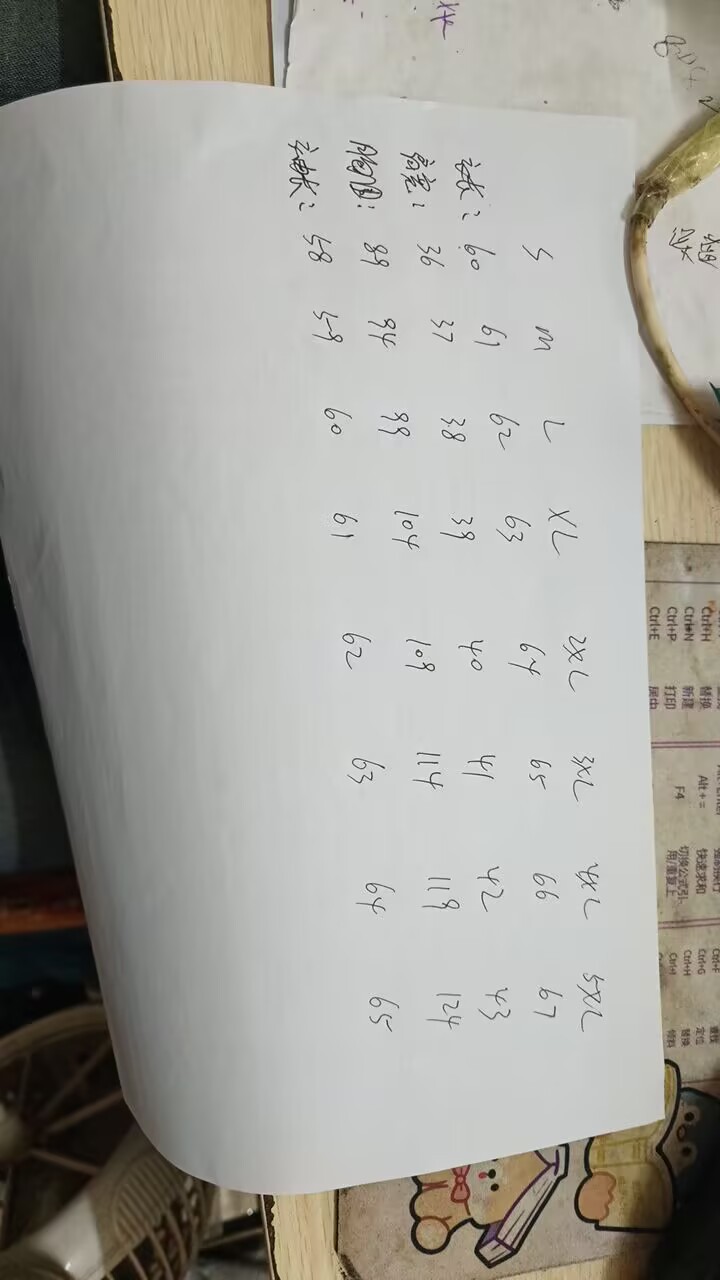 S M L XL 2XL 3XL 4XL 5XL
衣长: 60 61 62 63 64 65 66 67
肩宽: 36 37 38 39 40 41 42 43
胸围: 89 94 99 104 109 114 119 124
袖长: 58 59 60 61 62 63 64 65
Ctrl+H 替换
Ctrl+N 新建
Ctrl+P 打印
Ctrl+E 居中
Alt+=
F4
快速求和
切换公式引
用/重复上
Ctrl+F 查找
Ctrl+G 定位
Ctrl+H 替换